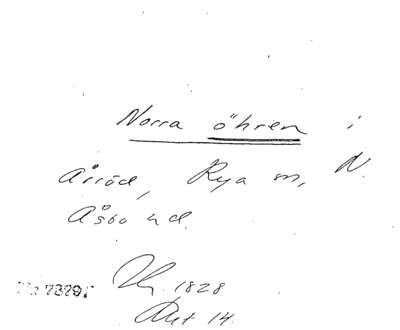 Norra öhren i
Årröd, Rya sn, N.
Åsbo hd.
1828
Akt 14.